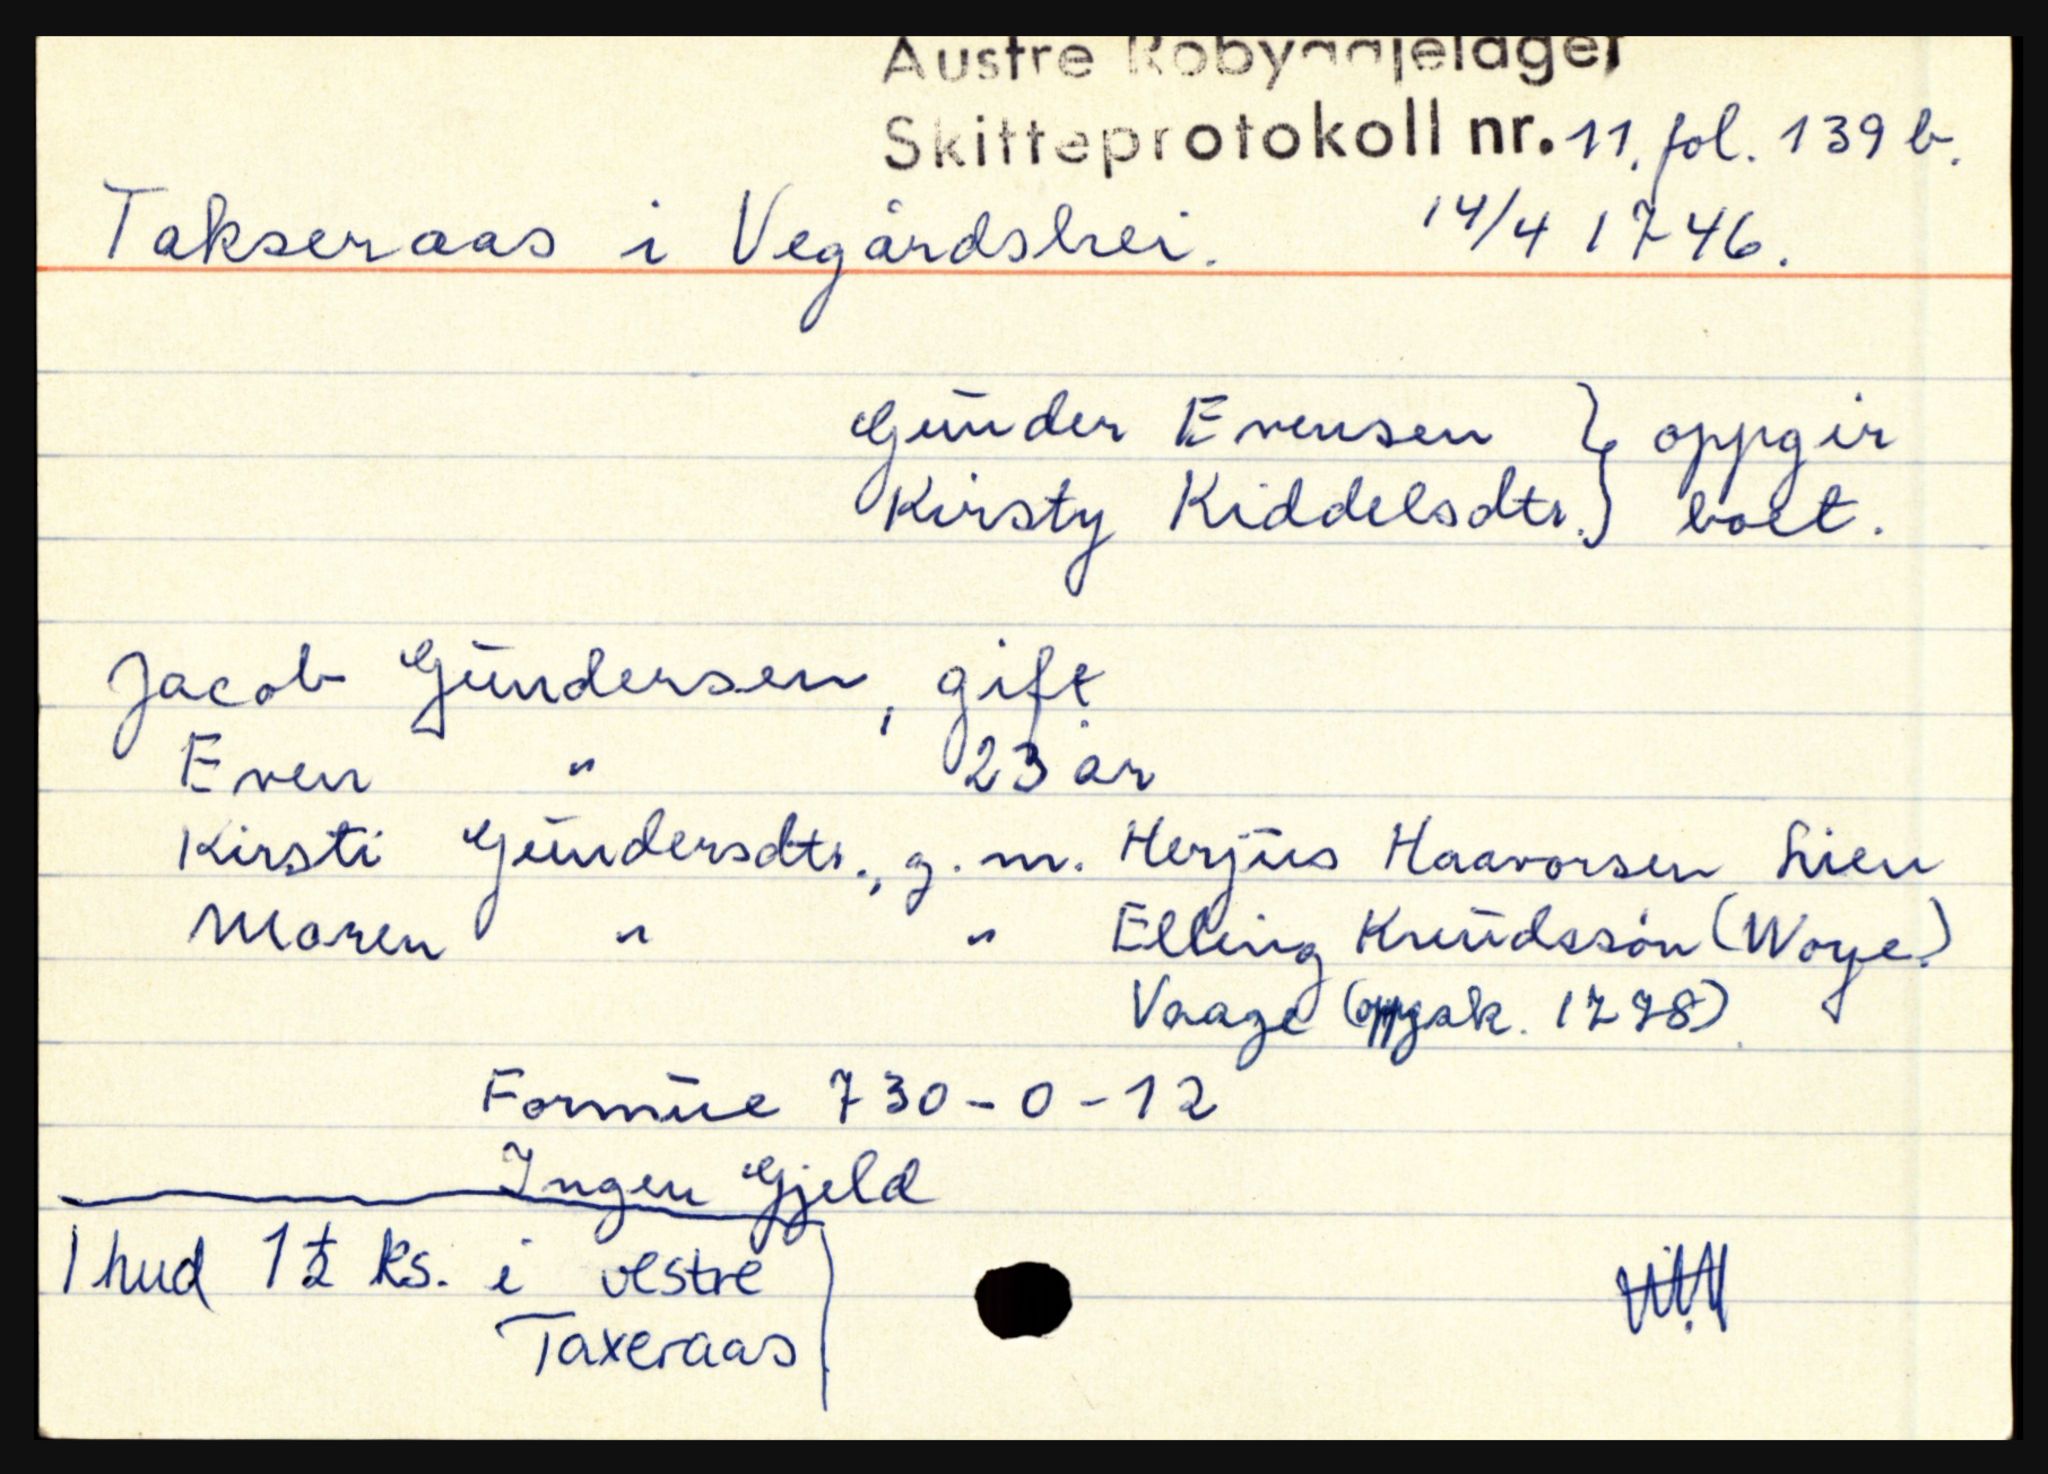 Austre Robyggjelaget
Skifteprotokoll nr. 11. fol. 139 b.
Takseraas i Vegårdshei. 14/4 1746.
Gŭnder Evensen } oppgir
Kirsty Kiddelsdtr. } boet.
Jacob Gŭndersen, gift
Even " 23 år
Kirsti Gŭndersdtr., g. m. Herjŭs Haavorsen Lien
Maren " " Elling Knŭdssøn (Woye.)
Vaage (oppgsk. 1778)
Formŭe 730-0-12
Ingen Gjeld
1 hud 1½ ks. i vestre
Taxeraas